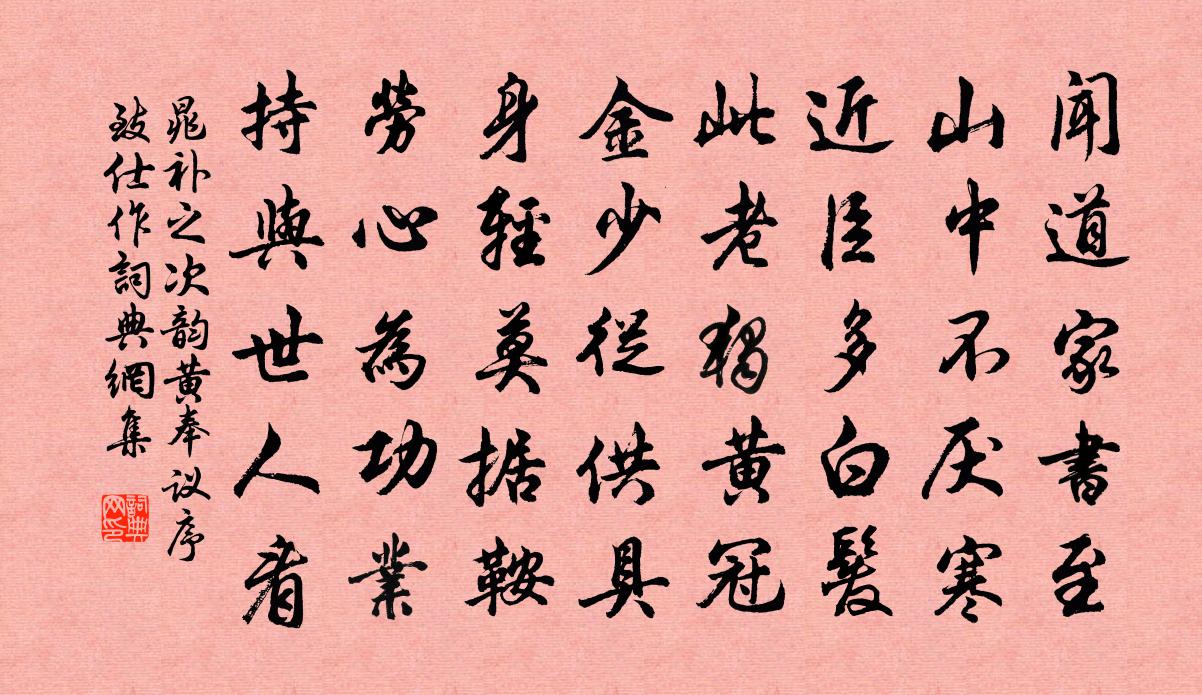 闻道家書至
山中不厌寒
近臣多白髮
此老独黄冠
金少從供具
身輕莫据鞍
勞心為功業
持與世人看
晁补之次韵黄奉议序
致仕作詞典網集
詞典
网印